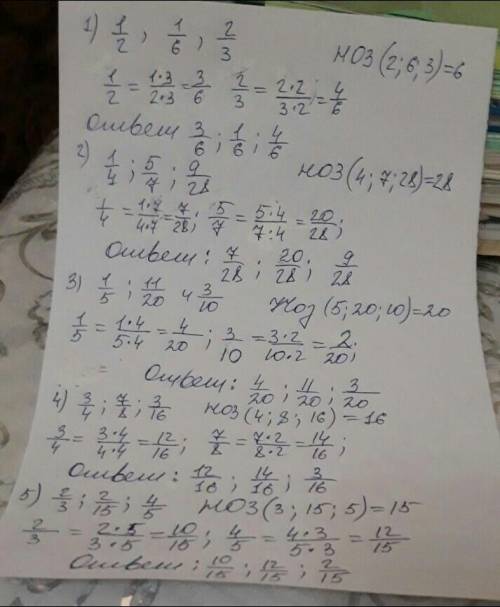 1) 1/2, 1/6, 2/3 НОЗ(2;6;3)=6
1/2 = 1·3/2·3 = 3/6 2/3 = 2·2/3·2 = 4/6
Ответ 3/6; 1/6; 4/6
2) 1/4; 5/7; 9/28 НОЗ(4;7;28)=28
1/4 = 1·7/4·7 = 7/28; 5/7 = 5·4/7·4 = 20/28;
Ответ: 7/28; 20/28; 9/28
3) 1/5; 11/20 и 3/10 Ноз (5;20;10)=20
1/5 = 1·4/5·4 = 4/20; 3/10 = 3·2/10·2 = 2/20;
Ответ: 4/20; 11/20; 3/20
4) 3/4; 7/8; 3/16 НОЗ(4;8;16)=16
3/4 = 3·4/4·4 = 12/16; 7/8 = 7·2/8·2 = 14/16;
Ответ: 12/16; 14/16; 3/16
5) 2/3; 2/15; 4/5 НОЗ(3;15;5)=15
2/3 = 2·5/3·5 = 10/15; 4/5 = 4·3/5·3 = 12/15
Ответ: 10/15; 12/15; 2/15